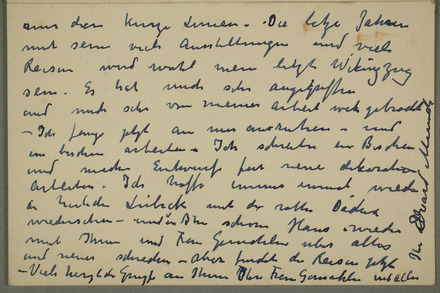 aus dem kurze Linien. - Die letze Jahren
mit sein viele Ausstellungen und viele
Reisen wird wohl mein letzte Wikingzug
sein. Es hat mich sehr angegriffen
und mich sehr von meiner Arbeit weg gebracht
- Ich fange jetzt an mir auszuruhen - und
ein bischen arbeiten - Ich schreibe ein Bischen
und mache Entwurfe fur neue dekorative
Arbeiten. Ich hoffe immer einmal wieder
Lübeck mit der roten Dächer
wiedersehen - und in Ihr schönes Haus wieder
mit Ihnen und Frau Gemahlin über alles
und neues - aber finde die Reisen jetzt
- Viele herzliche Grüsse an Ihnen Ihr Frau Gemahlin und alles
Ihr Edvard Munch